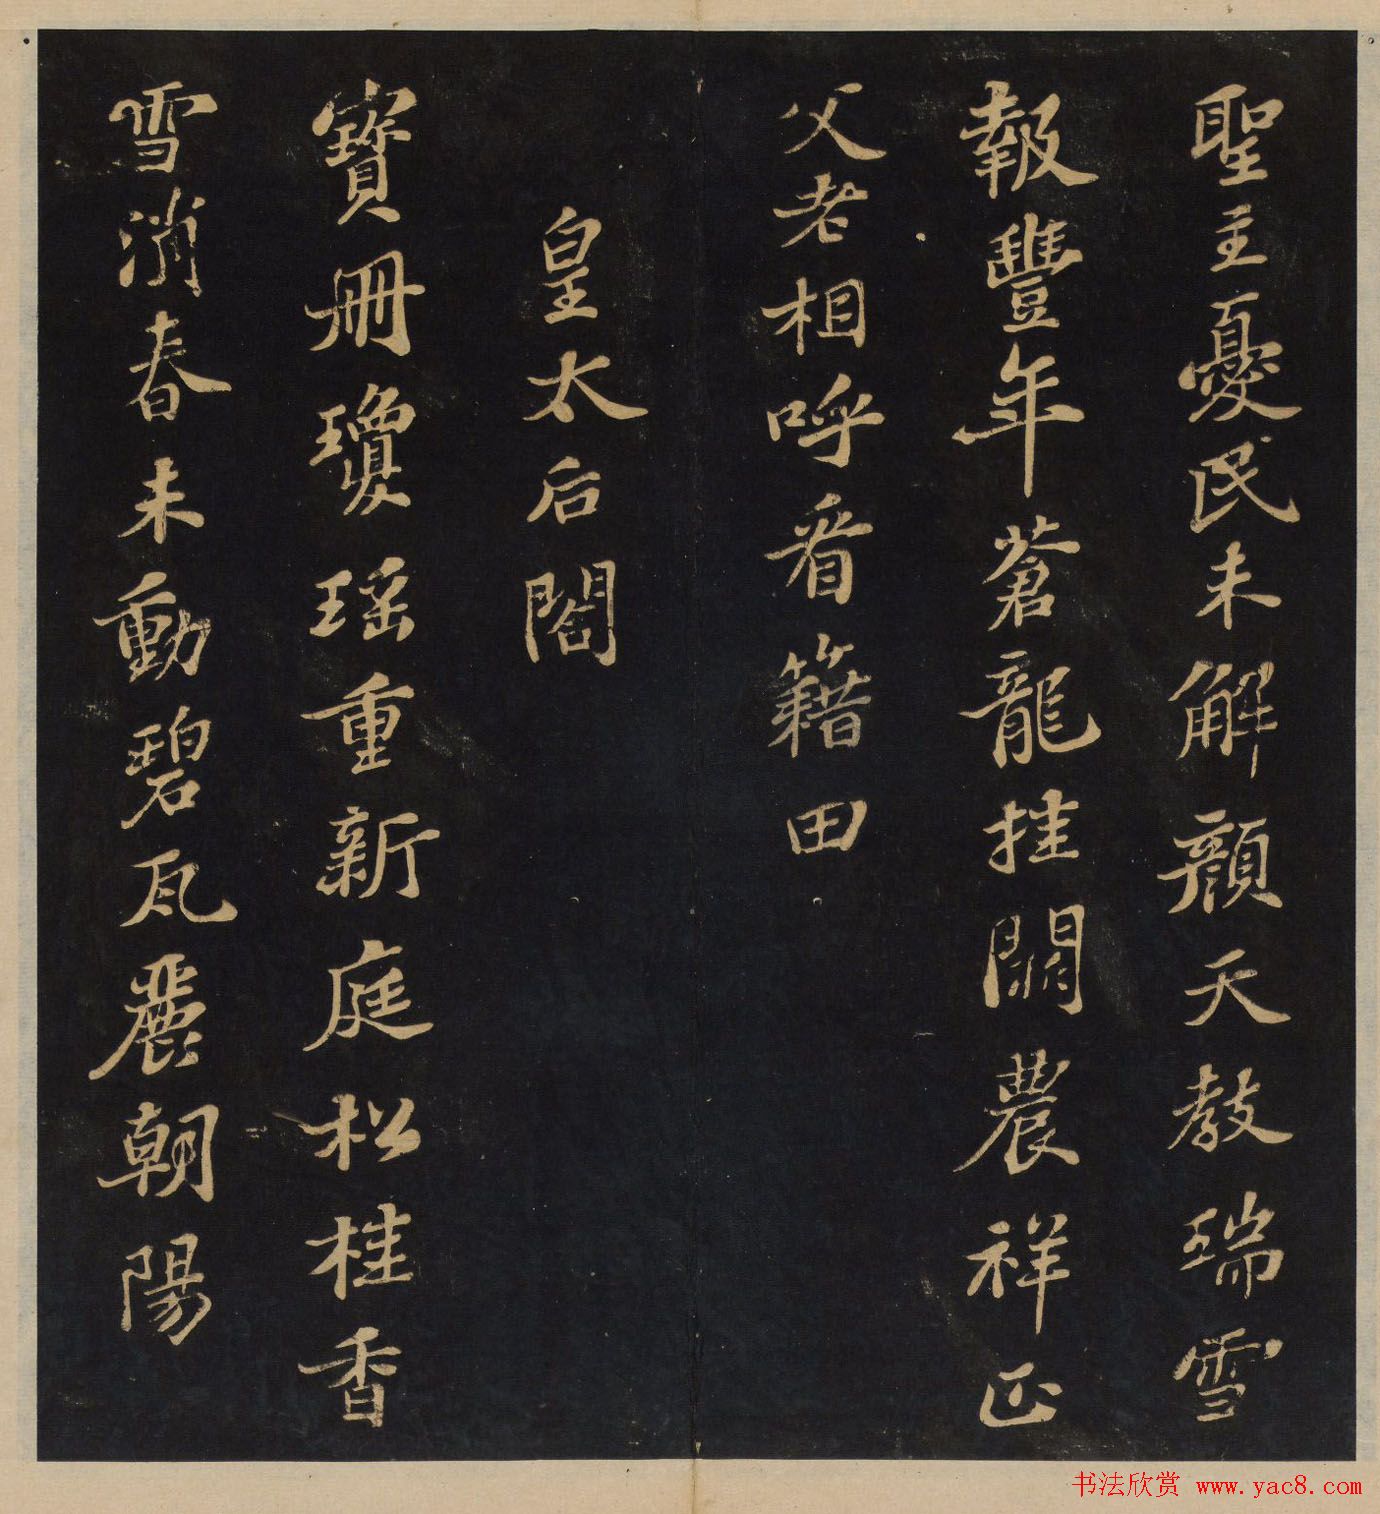 聖主憂民未解顏天教瑞雪
報豐年蒼龍挂闕農祥正
父老相呼看籍田
皇太后閣
寶册瓊瑶重新庭松桂香
雪消春未動碧瓦麗朝陽
书法欣赏 www.yac8.com